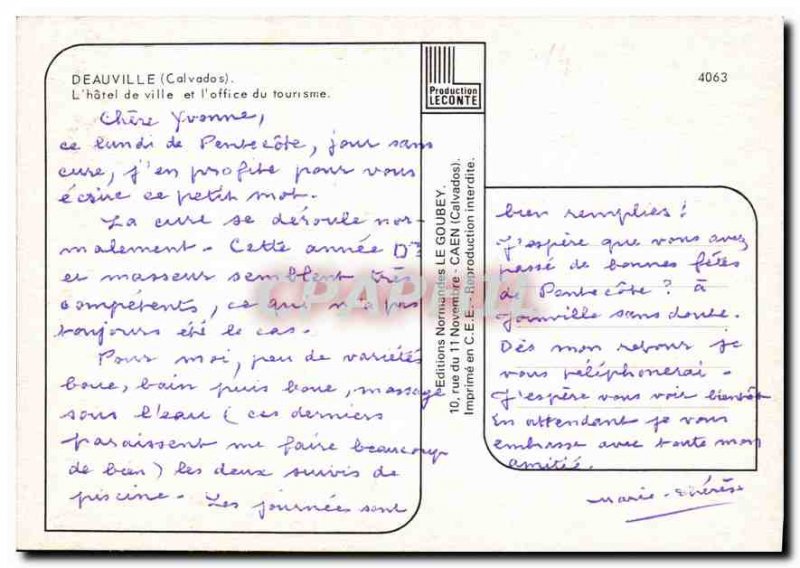 DEAUVILLE (Calvados).
L'hôtel de ville et l'office du tourisme.
Production
LECONTE
4063
Chère Yvonne,
ce lundi de Pentecôte, jour sans
cure, j'en profite pour vous
écrire ce petit mot.
La cure se déroule nor-
malement - Cette année Drs
et masseur semblent très
compétents, ce qui n'a pas
toujours été le cas.
Pour moi, peu de variétés
boue, bain puis boue, massage
sous l'eau (ces derniers
paraissent me faire beaucoup
de bien) les deux suivis de
piscine - Les journées sont
Editions Normandes LE GOUBEY.
10, rue du 11 Novembre - CAEN (Calvados).
Imprimé en C.E.E. - Reproduction interdite.
bien remplies !
J'espère que vous avez
passé de bonnes fêtes
de Pentecôte ? à
Joinville sans doute.
Dès mon retour je
vous téléphonerai -
J'espère vous voir bientôt
En attendant je vous
embrasse avec toute mon
amitié.
Marie-Thérèse